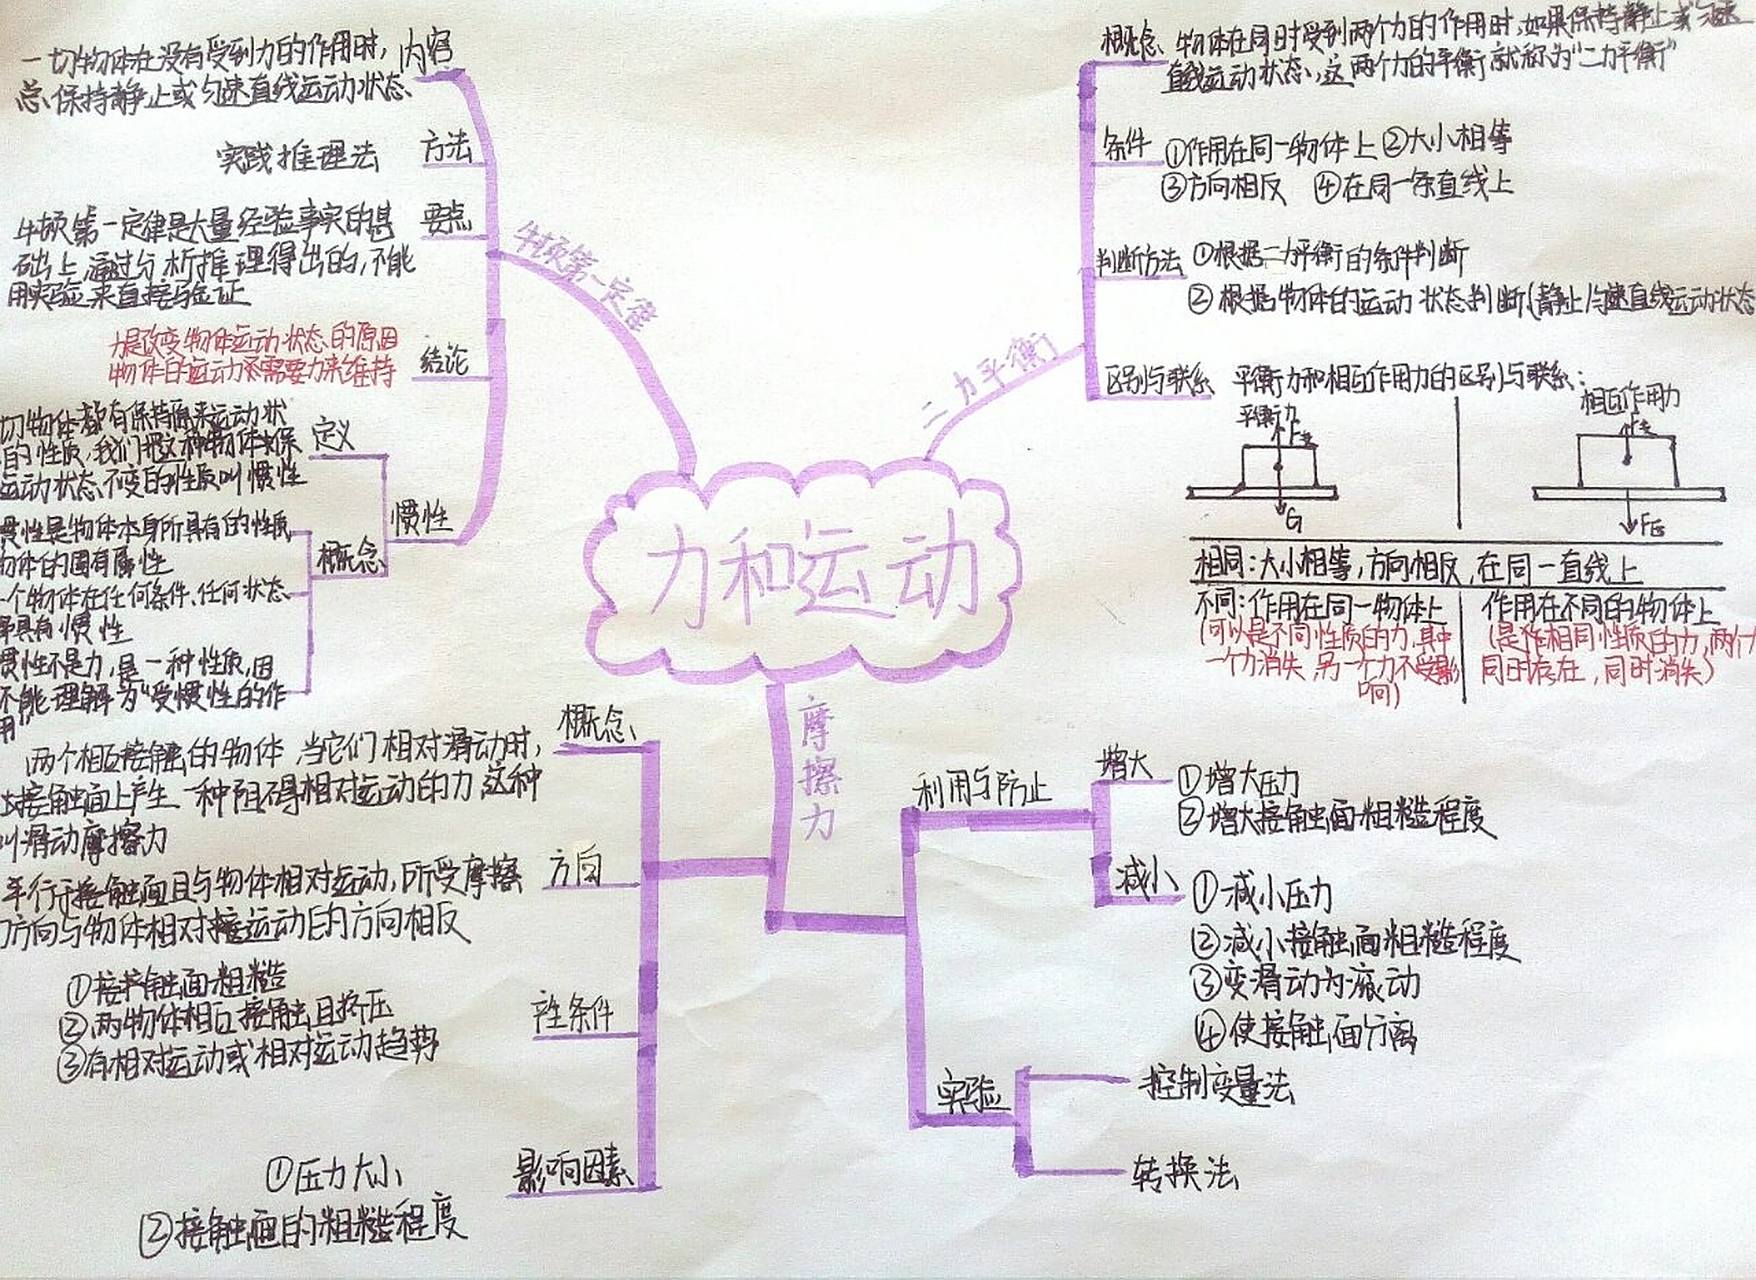 力和运动
牛顿第一定律
内容
一切物体在没有受到力的作用时,
总保持静止或匀速直线运动状态
方法
实践推理法
要点
牛顿第一定律是大量经验事实的基
础上,通过分析推理得出的,不能
用实验来直接验证
结论
力是改变物体运动状态的原因
物体的运动不需要力来维持
惯性
定义
切物体都有保持原来运动状
的性质,我们把这种物体保
运动状态不变的性质叫惯性
概念
惯性是物体本身所具有的性质
物体的固有属性
一个物体在任何条件、任何状态
具有惯性
惯性不是力,是一种性质,因
不能理解为“受惯性的作
用”
二力平衡
概念
物体在同时受到两个力的作用时,如果保持静止或匀速
直线运动状态,这两个力的平衡就称为“二力平衡”
条件
①作用在同一物体上 ②大小相等
③方向相反 ④在同一条直线上
判断方法
①根据二力平衡的条件判断
②根据物体的运动状态判断(静止/匀速直线运动状态
区别与联系
平衡力和相互作用力的区别与联系:
平衡力
F支
G
相互作用力
F支
F压
相同:大小相等,方向相反,在同一直线上
不同:作用在同一物体上
(可以是不同性质的力,其中
一个力消失,另一个力不受影
响)
作用在不同的物体上
(是作相同性质的力,两个
同时存在,同时消失)
摩擦力
概念
两个相互接触的物体,当它们相对滑动时,
接触面上产生一种阻碍相对运动的力,这种
叫滑动摩擦力
方向
平行于接触面且与物体相对运动,所受摩擦
力方向与物体相对接运动的方向相反
产生条件
①接触面粗糙
②两物体相互接触且挤压
③有相对运动或相对运动趋势
影响因素
①压力大小
②接触面的粗糙程度
利用与防止
增大
①增大压力
②增大接触面粗糙程度
减小
①减小压力
②减小接触面粗糙程度
③变滑动为滚动
④使接触面分离
实验
控制变量法
转换法